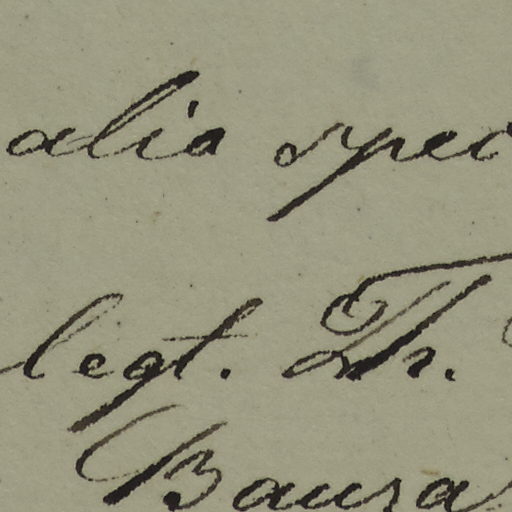 alia spec
legt. Th.
Bausa